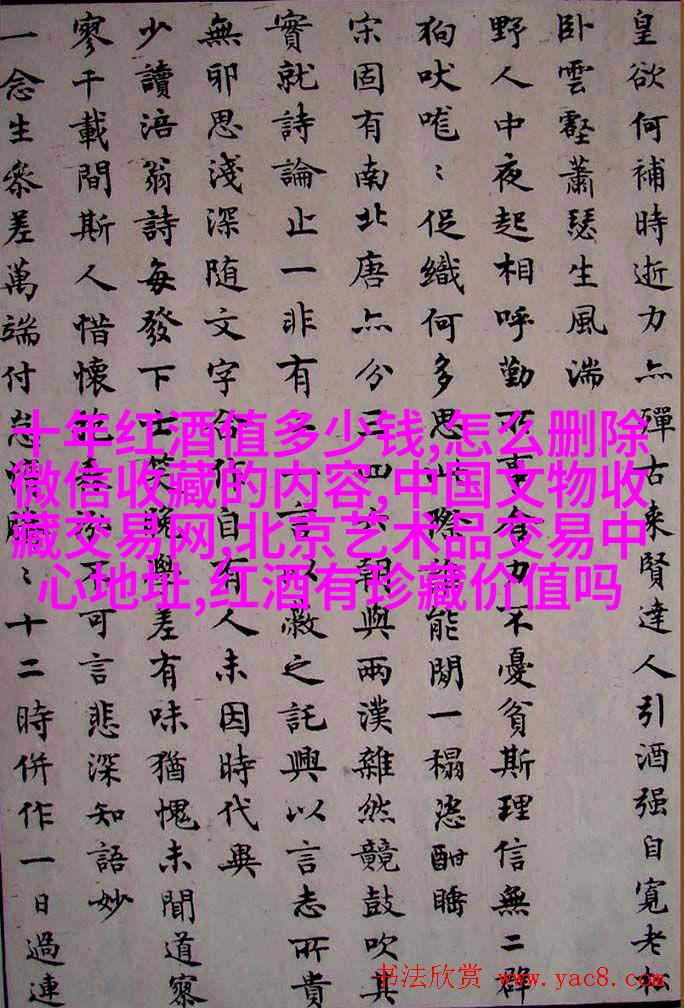 皇欲何補時逝力亦殫古來賢達人引酒强自寬老
卧雲壑蕭瑟生風湍
野人中夜起相呼勤事合力不憂貧斯理信無二群
狗吠嘊〻促織何多思此際能閉一榻恣酣睡
宋固有南北唐亦分三四六朝與兩漢雜然競鼓吹其
實就詩論止一非有二一言以蔽之託興以言志所貴
無邪思淺深随文字合作自有人未因時代異
少讀涪翁詩每發下士笑晚學差有味猶愧未聞道寥
寥千載間斯人惜懷不可言悲深知語妙
一念生參差萬端付〻十二時併作一日過連
十年红酒值多少钱,怎么删除
微信收藏的内容,中国文物收
藏交易网,北京艺术品交易中
心地址,红酒有珍藏价值吗
书法欣赏 www.yac8.com